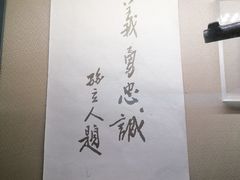 義勇忠誠
孫立人題